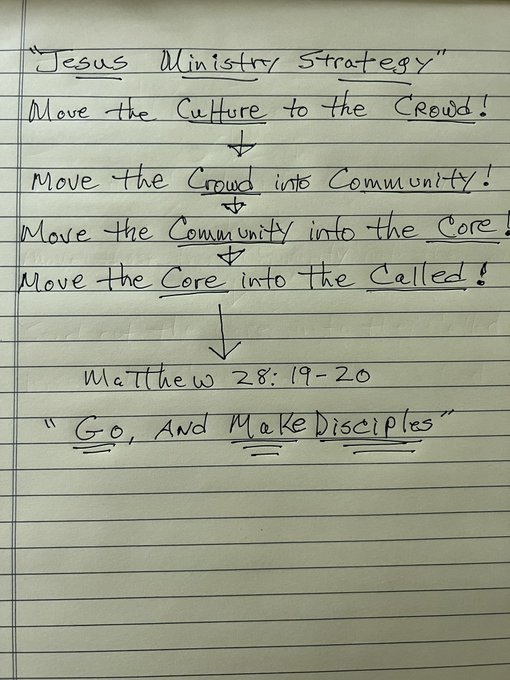 "Jesus Ministry Strategy"
Move the Culture to the Crowd!
Move the Crowd into Community!
Move the Community into the Core!
Move the Core into the Called!
Matthew 28:19-20
"Go, And Make Disciples"